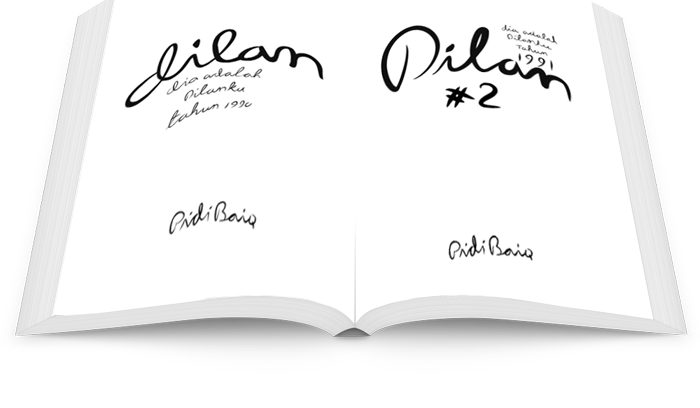 dilan
dia adalah
Dilanku
tahun 1990
Pidi Baiq
Dilan
dia adalah
Dilanku
tahun
1991
#2
Pidi Baiq